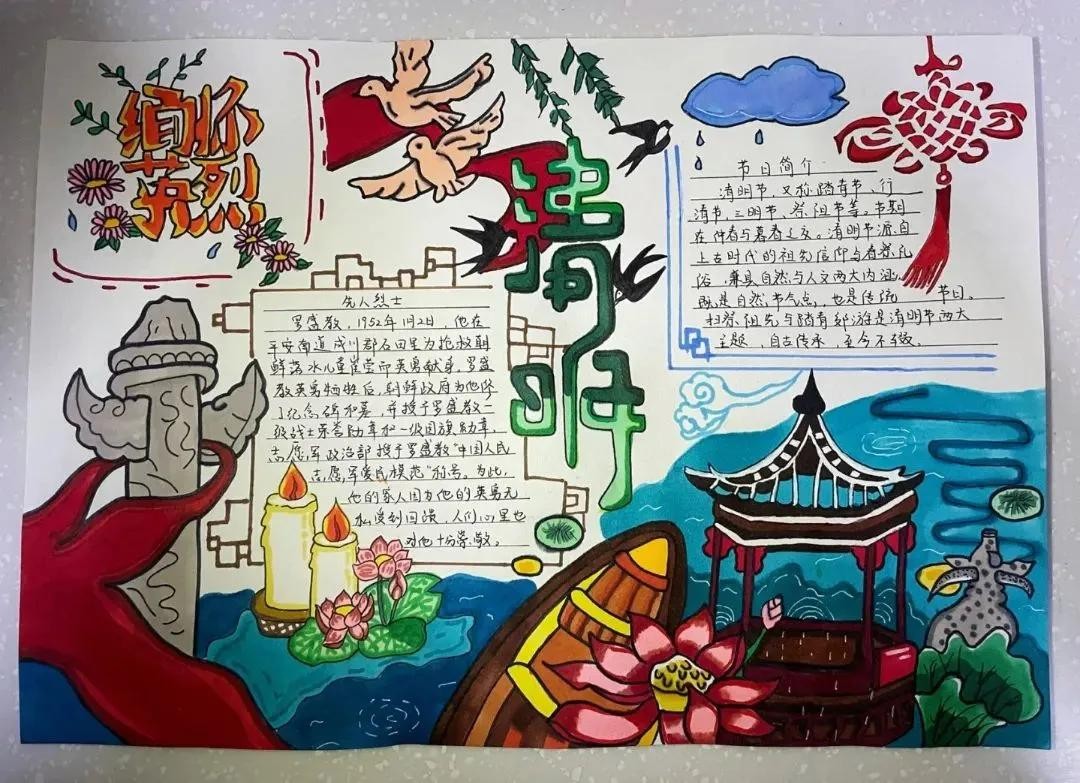 缅怀
英烈
清明
节日简介
清明节，又称踏青节、行
清节、三明节、祭祖节等。节期
在仲春与暮春之交。清明节源自
上古时代的祖先信仰与春祭礼
俗，兼具自然与人文两大内涵，
既是自然节气点，也是传统 节日。
扫祭祖先与踏青郊游是清明节两大
主题，自古传承，至今不辍。
先人烈士
罗盛教，1952年1月2日，他在
平安南道成川郡石田里为抢救朝
鲜落水儿童崔莹而英勇献身。罗盛
教英勇牺牲后，朝鲜政府为他修
了纪念碑和墓，并授予罗盛教一
级战士荣誉勋章和一级国旗勋章，
志愿军政治部授予罗盛教“中国人民
志愿军爱民模范”称号。为此，
他的家人因为他的英勇无
私受到回馈，人们心里也
对他十分崇敬。